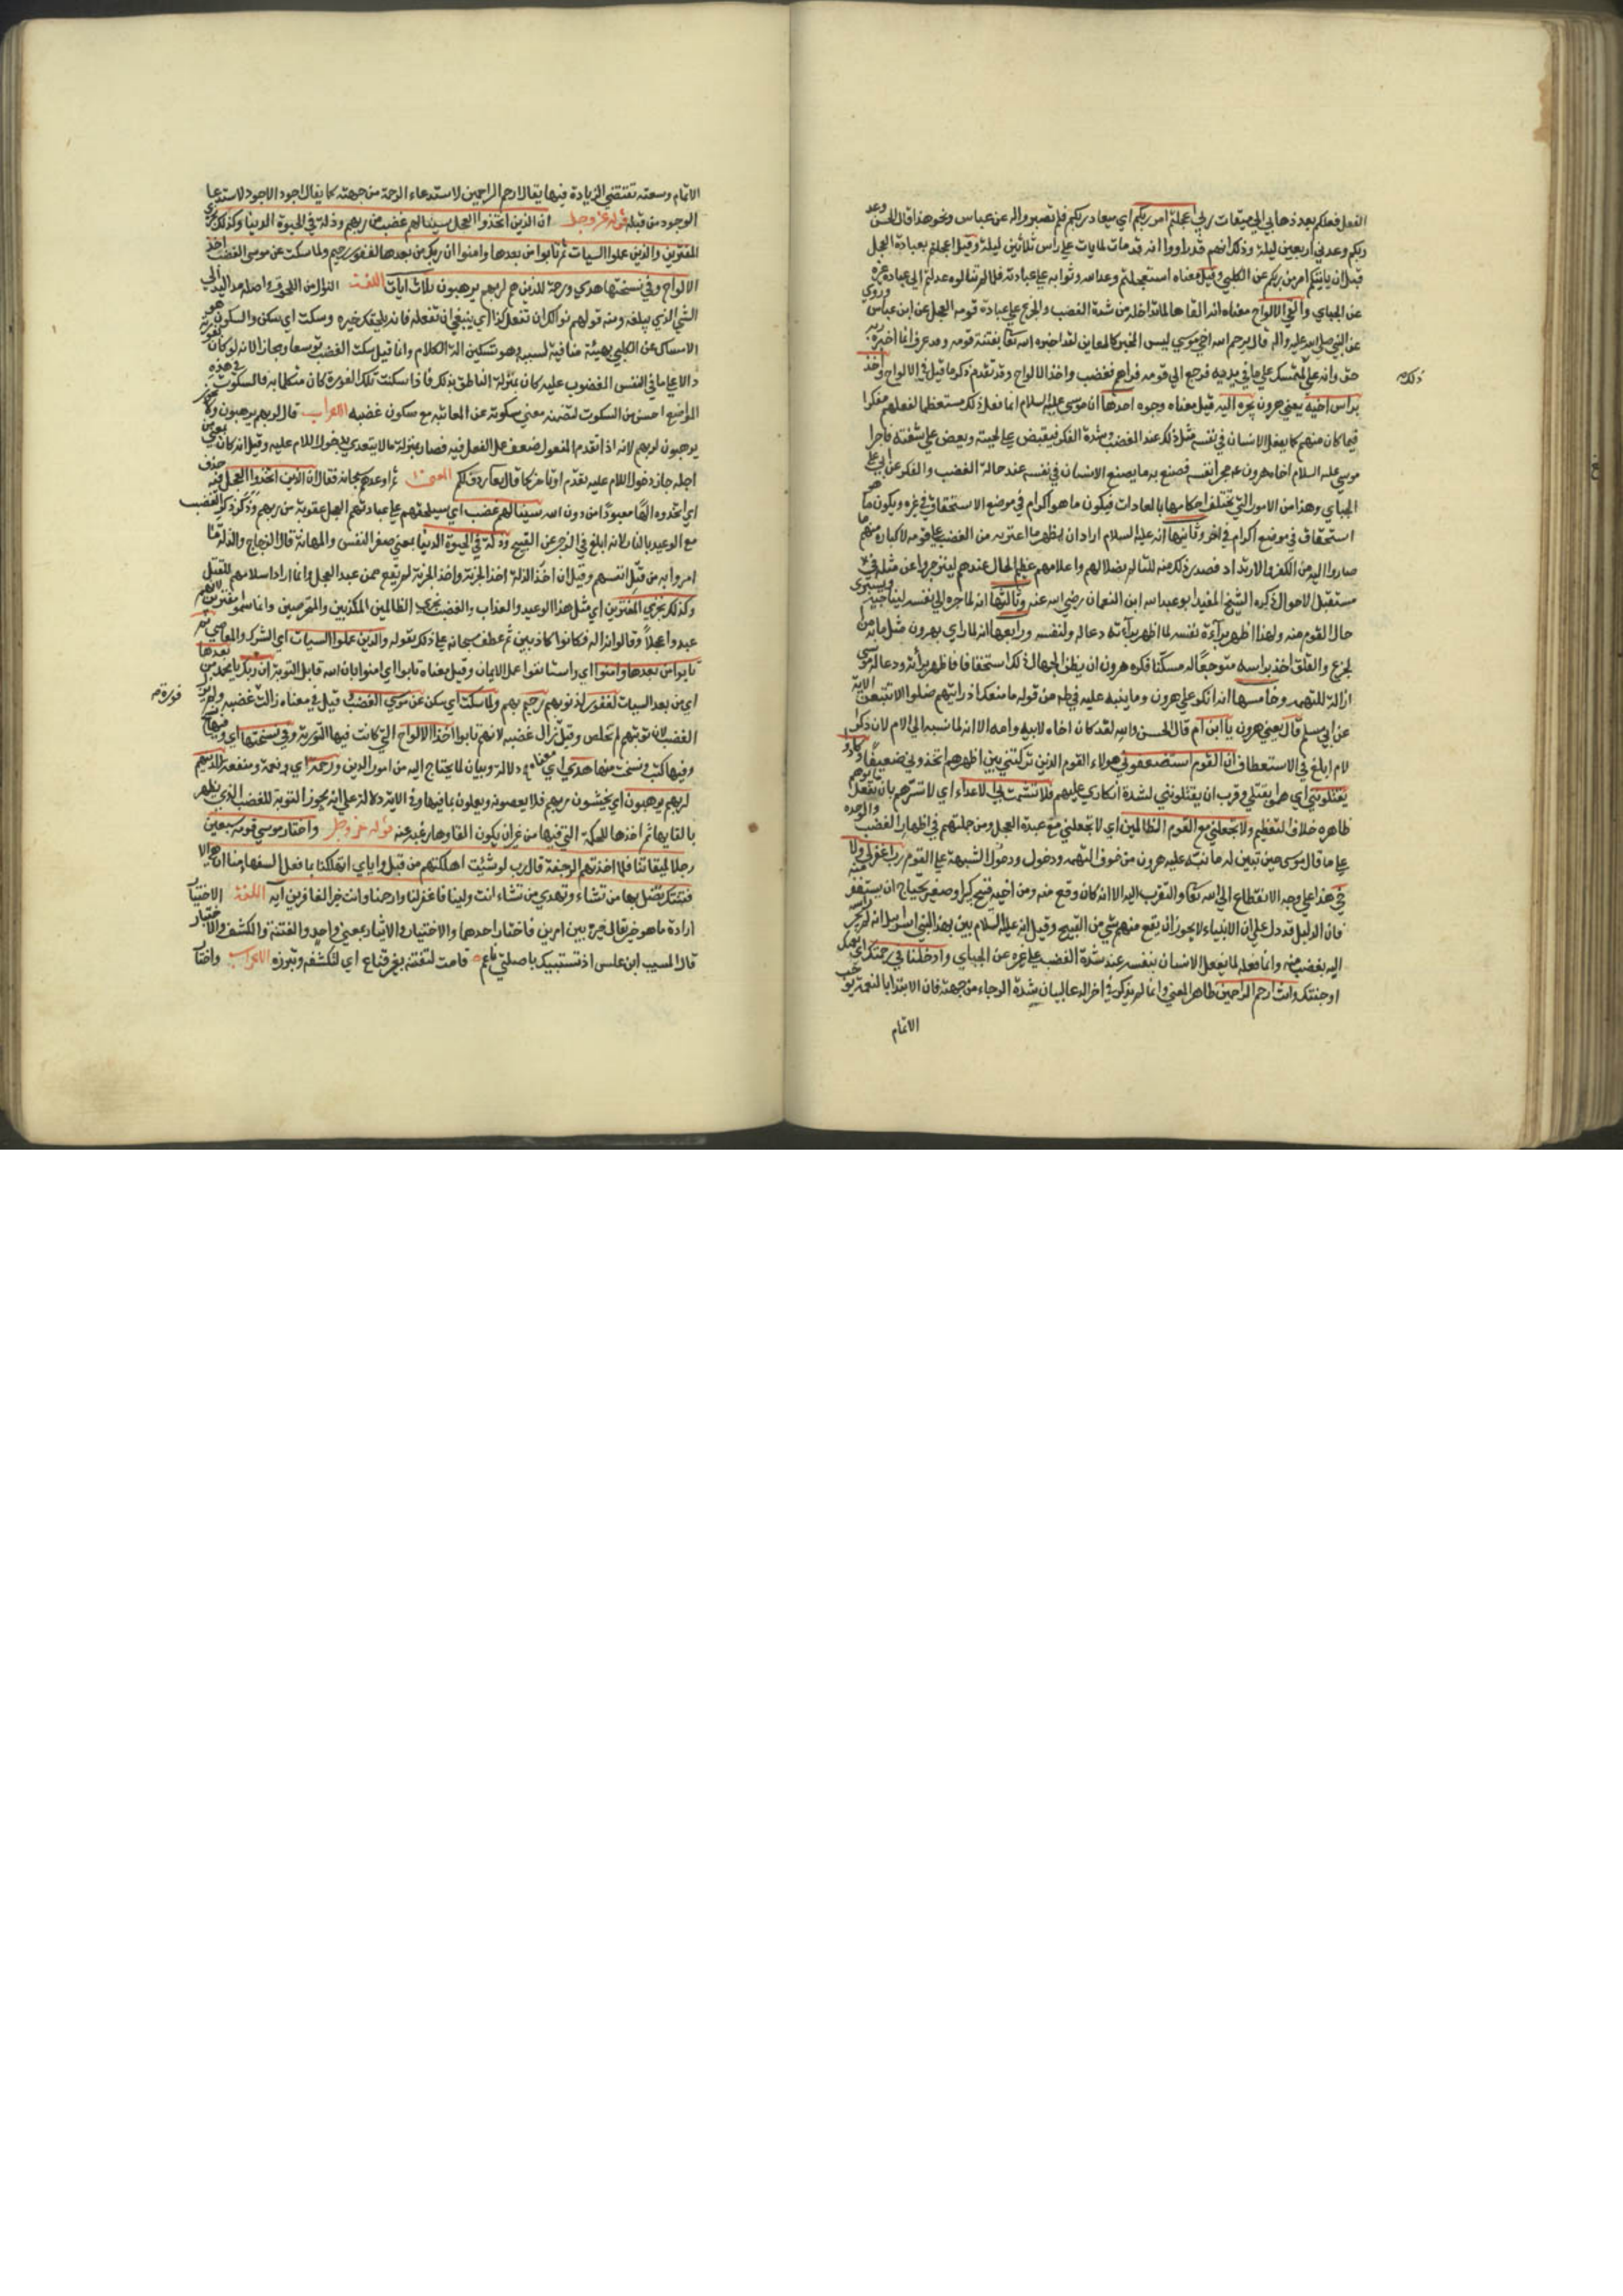 الفعل فعلكم بعد ذهابي الى ميقات ربي اعجلتم امر ربكم اي ميعاد ربكم فلم تصبروا له عن عباس ونحو هذا قال الحسن وعد
ربكم وعدني اربعين ليلة وذلك انهم قدروا انه قد مات لما لم يات على راس ثلاثين ليلة وقيل اعجلتم بعبادة العجل
قبل ان ياتيكم امر من ربكم عن الكلبي وقيل معناه استعجلتم وعد الله وثوابه على عبادته فلما لم تنالوه عدلتم الى عبادة غيره
عن الجباي والقى الالواح معناه انه القاها لما تداخله من شدة الغضب والجزع على عبادة قومه العجل عن ابن عباس وروي
عن النبي صلى الله عليه واله قال يرحم الله اخي موسى ليس الخبر كالمعاين لقد اخبره الله تعالى بفتنة قومه وقد عرف ان ما اخبره ربه
حق وانه على ذلك لمتمسك على ما في يديه فرجع الى قومه فراهم فغضب والقى الالواح وقد تقدم ذكر ما قيل في الالواح واخذ
براس اخيه يعني هرون يجره اليه قيل معناه وجوه احدها ان موسى عليه السلام انما فعل ذلك مستعظما لفعلهم مفكرا
فيما كان منهم كما يفعل الانسان في نفسه مثل ذلك عند الغضب وشدة الفكر فيقبض على لحيته ويعض على شفته فاجرا
موسى عليه السلام اخاه هرون مجرى نفسه فصنع به ما يصنع الانسان في نفسه عند حالة الغضب والفكر عن ابي علي
الجباي وهذا من الامور التي تختلف احكامها بالعادات فيكون ما هو اكرام في موضع الاستحقاق في غيره ويكون ما هو
استحقاق في موضع اكرام في اخر وثانيها انه عليه السلام اراد ان يظهر ما اعتريه من الغضب على قومه لاكباره منهم ما
صاروا اليه من الكفر والارتداد فصدر ذلك منه للتالم بضلالهم واعلامهم عظم الحال عندهم لينزجروا عن مثله في
مستقبل الاحوال ذكره الشيخ المفيد ابو عبد الله ابن النعمان رضي الله عنه وثالثها انه لما جره الى نفسه ليناجيه ويستبرى
حال القوم منه ولهذا اظهر براءة نفسه لما اظهر براءته دعا له ولنفسه ورابعها انه لما راي بهرون مثل ما به من
الجزع والقلق اخذ براسه متوجعا له مسكنا فكره هرون ان يظن الجهال ذلك استخفافا فاظهر براته ودعا له موسى
ازالة للتهمه وخامسها انه انكر على هرون وما بينه عليه في طه من قوله ما منعك اذ رايتهم ضلوا الا تتبعن الاية
عن ابي مسلم قال يعني هرون يا ابن ام قال الحسن والله لقد كان اخاه لابيه وامه الا انه لما نسبه الى الام لان ذكر
الام ابلغ في الاستعطاف ان القوم استضعفوني هولاء القوم الذين تركتني بين اظهرهم اتخذوني ضعيفا وكادوا
يقتلونني اي هموا بقتلي وقرب ان يقتلونني لشدة انكاري عليهم فلا تشمت بي الاعداء اي لا تسرهم بان تفعل ما يوهم
ظاهره خلاف التعظيم ولا تجعلني مع القوم الظالمين اي لا تجعلني مع عبدة العجل ومن جملتهم في اظهار الغضب والموجده
علي ما قال موسى حين تبين له ما نبه عليه هرون من خوف التهمه ودخول الشبهة على القوم رب اغفر لي ولا
خي هذا على وجه الانقطاع الى الله تعالى والتقرب اليه لا انه كان وقع منه ومن اخيه قبيح كبير او صغير يحتاج ان يستغفر منه
فان الدليل قد دل على ان الانبياء لا يجوز ان يقع منهم شي من القبيح وقيل انه عليه السلام بين بهذا لبني اسرائيل انه لم يجر راسه
اليه بغضب منه وانما فعله لما يفعل الانسان بنفسه عند شدة الغضب على غيره عن الجباي وادخلنا في رحمتك اي نعمتك
او جنتك وانت ارحم الراحمين ظاهر المعني وانما لم يذكر في اخر الدعا لبيان شدة الرجاء من جهته فان الابتدا بالنعمة يوجب
الاتمام
ذلك
الاتمام وسعته تقتضي الزيادة فيها يقال ارحم الراحمين لاستدعاء الرحمة من جهته كما يقال اجود الاجود لاستدعا
الوجود من قبله قوله عز وجل ان الذين اتخذوا العجل سينالهم غضب من ربهم وذلة في الحيوة الدنيا وكذلك نجزي
المفترين والذين عملوا السيات ثم تابوا من بعدها وامنوا ان ربك من بعدها لغفور رحيم ولما سكت عن موسى الغضب اخذ
الالواح وفي نسختها هدي ورحمة للذين هم لربهم يرهبون ثلاث ايات اللغت النوال من اللحوق اصله مد اليد الى
الشي الذي يبلغه ومنه قولهم نوالك ان تفعل كذا اي ينبغي ان تفعله فانه يلحقك خيره وسكت اي سكن والسكوت هو
الامساك عن الكلام بهيئة منافية لسببه وهو تسكين الة الكلام وانما قيل سكت الغضب توسعا ومجازا لانه لو كان بفورته
دالا على ما في النفس المغضوب عليه كان بمنزلة الناطق بذلك فاذا سكنت تلك الفورة كان مثل ما به فالسكوت في هذه
المواضع احسن من السكوت لتضمنه معنى سكوته عن المعاتبه مع سكون غضبه الاعراب قال لربهم يرهبون ولا يجوز
يرهبون لربهم لانه اذا تقدم المفعول ضعف عمل الفعل فيه فصار بمنزلة ما لا يتعدي بدخول اللام عليه وقيل انه كان يعني من
اجله جاز دخول اللام عليه تقدم او تاخر كما قال تعالى ردف لكم المعنى ثم اوعدهم سبحانه فقال ان الذين اتخذوا العجل فيه حذف
اي اتخذوه الها معبودا من دون الله سينالهم غضب اي سيلحقهم على عبادتهم العجل عقوبة من ربهم وذكر ذكر الغضب
مع الوعيد بالنار لانه ابلغ في الزجر عن القبيح وذلة في الحيوة الدنيا يعني صغر النفس والمهانة قال الزجاج والذلة ما
امروا به من قتل انفسهم وقيل ان اخذ الذلة اخذ الجزية واخذ الجزية لم يقع ممن عبد العجل وانما اراد اسلامهم للقتل
وكذلك نجزي المفترين اي مثل هذا الوعيد والعذاب والغضب نجزي الظالمين المكذبين والمتخرصين وانما سموا مفترين لانهم
عبدوا عجلا وقالوا انه اله فكانوا كاذبين ثم عطف سبحانه على ذلك بقوله والذين عملوا السيات اي الشرك والمعاصي ثم
تابوا من بعدها وامنوا اي واستانفوا عمل الايمان وقيل معناه تابوا اي امنوا بان الله قابل التوبة ان ربك يا محمد من بعدها
اي من بعد السيات لغفور لذنوبهم رحيم بهم ولما سكت اي سكن عن موسى الغضب وقيل في معناه زالت غضبه ولم
الغضب لان توبتهم لم تخلص وقيل زال غضبه لانهم تابوا اخذ الالواح التي كانت فيها التورية وفي نسختها اي فيها
وفيها كتب ونسخت منها هدي اي معناه دلالة وبيان لما يحتاج اليه من امور الدين ورحمة اي ونعمة ومنفعة للذين هم
لربهم يرهبون اي يخشون ربهم فلا يعصونه ويعلمون بما فيها وفي الاية دلالة على انه يجوز التوبة للغضب الذي يظهر
بالقايها ثم اخذها للحكمة التي فيها من غير ان يكون القاوها رغبه عنه قوله عز وجل واختار موسى قومه سبعين
رجلا لميقاتنا فلما اخذتهم الرجفة قال رب لو شئت اهلكتهم من قبل واياي اتهلكنا بما فعل السفهاء منا ان هي الا
فتنتك تضل بها من تشاء وتهدي من تشاء انت ولينا فاغفر لنا وارحمنا وانت خير الغافرين ايه اللغة الاختيار
ارادة ما هو خير يقال خيره بين امرين فاختار احدهما والاختيار والايثار بمعني واحد والفتنة والكشف والاختبار
قال المسيب ابن علس اذ تستبيك باصلتي ناعم قامت لتفتنه بغير قناع اي لتكشفه وتبرزه الاعراب واختار
فورته